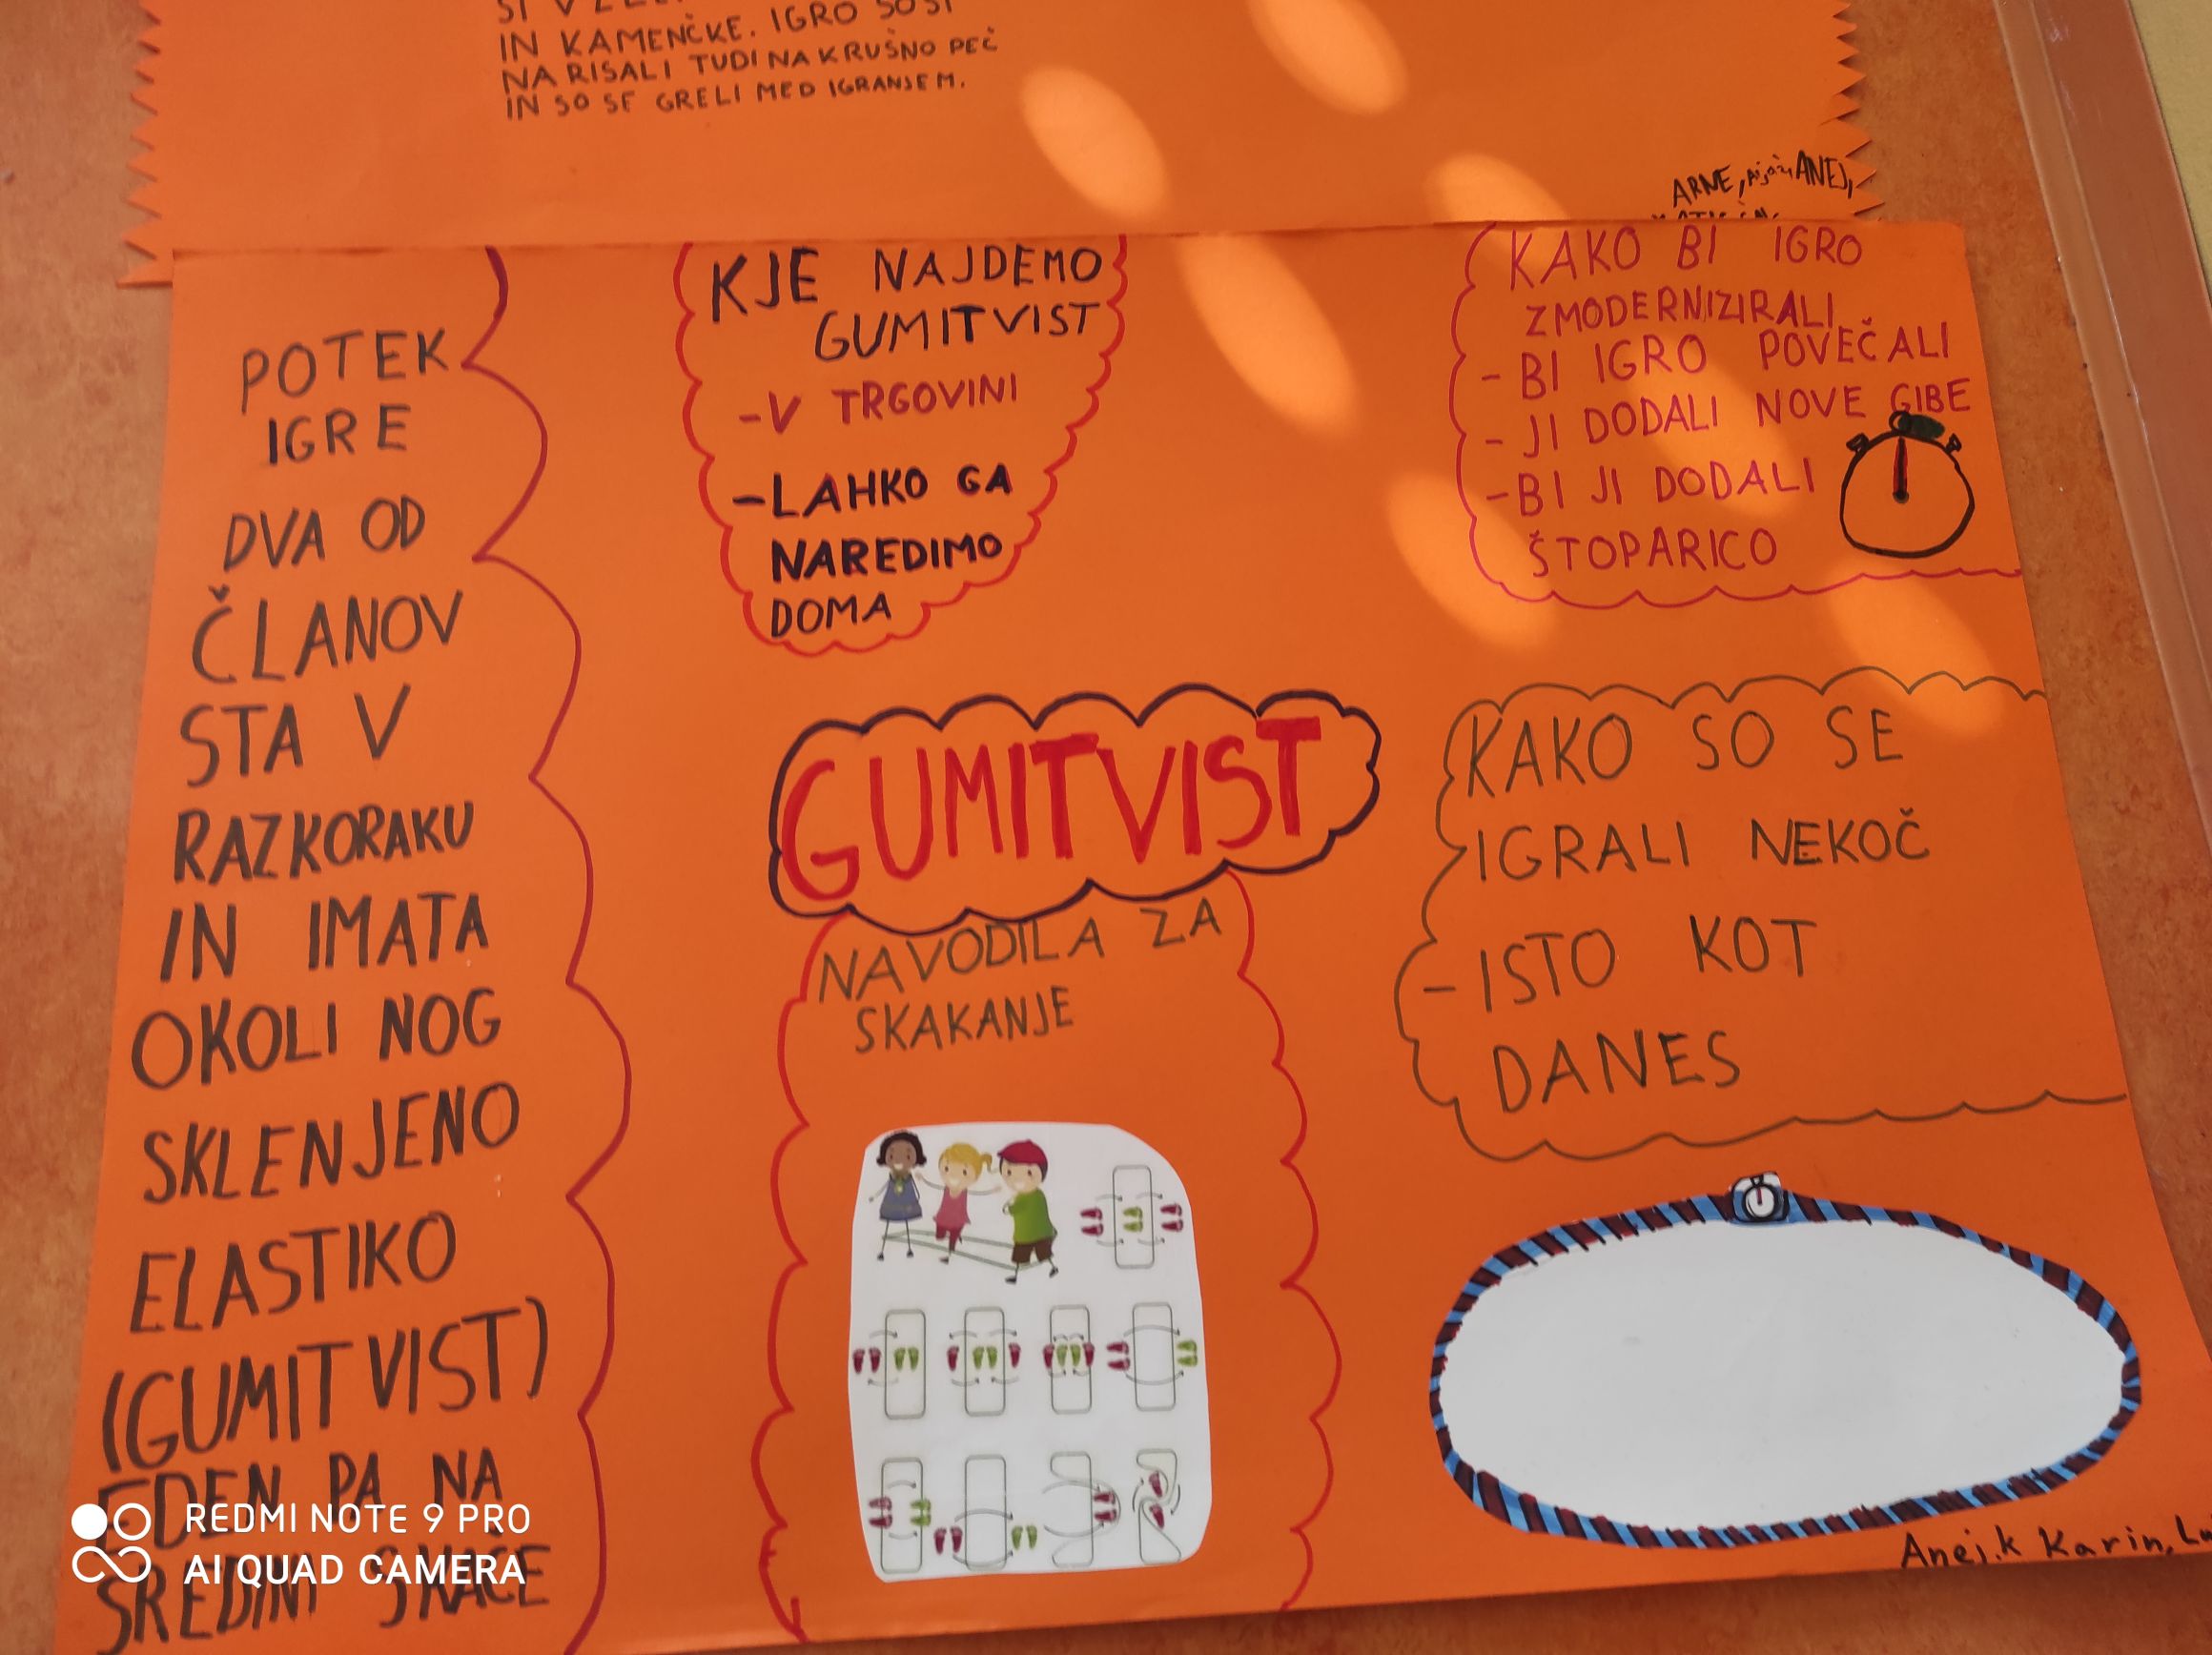 IN KAMENČKE. IGRO SO SI
NARISALI TUDI NA KRUŠNO PEČ
IN SO SE GRELI MED IGRANJEM.
ARNE, ANEJ,
POTEK
IGRE
DVA OD
ČLANOV
STA V
RAZKORAKU
IN IMATA
OKOLI NOG
SKLENJENO
ELASTIKO
(GUMITVIST)
EDEN PA NA
SREDINI SKAČE
KJE NAJDEMO
GUMITVIST
-V TRGOVINI
-LAHKO GA
NAREDIMO
DOMA
GUMITVIST
NAVODILA ZA
SKAKANJE
KAKO BI IGRO
ZMODERNIZIRALI
-BI IGRO POVEČALI
-JI DODALI NOVE GIBE
-BI JI DODALI
ŠTOPARICO
KAKO SO SE
IGRALI NEKOČ
-ISTO KOT
DANES
Anej.k Karin,
REDMI NOTE 9 PRO
AI QUAD CAMERA